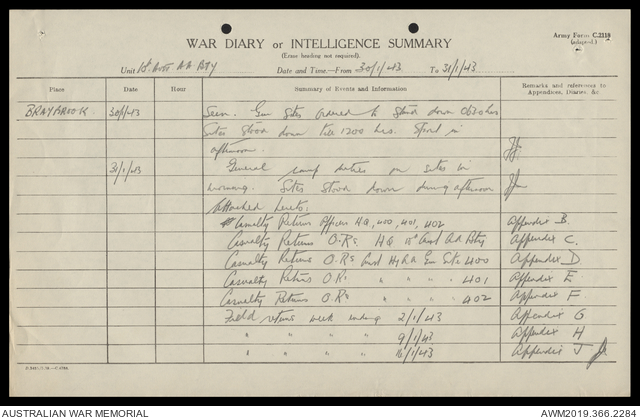 Army Form C.2118
(adapted.)
WAR DIARY or INTELLIGENCE SUMMARY
(Erase heading not required).
Unit 18 Aust A.A. Bty Date and Time—From 30/1/43 To 31/1/43
Place Date Hour Summary of Events and Information Remarks and references to Appendices, Diaries, &c
BRAYBROOK 30/1/43 Gun Sites ordered to Stand down 0620 hrs
Sites Stood down till 1200 hrs. Sport in
afternoon.
31/1/43 General camp duties on sites in
morning. Sites Stood down during afternoon
Attached hereto:
Casualty Returns Officers HQ, 400, 401, 402 Appendix B.
Casualty Returns O.R's HQ 18 Aust A.A. Bty Appendix C.
Casualty Returns O.R's Aust Hy A.A Gun Site 400 Appendix D
Casualty Returns O.R's " " " 401 Appendix E
Casualty Returns O.R's " " " 402 Appendix F
Field returns week ending 2/1/43 Appendix G
" " " " 9/1/43 Appendix H
" " " " 16/1/43 Appendix J
AUSTRALIAN WAR MEMORIAL AWM2019.366.2284